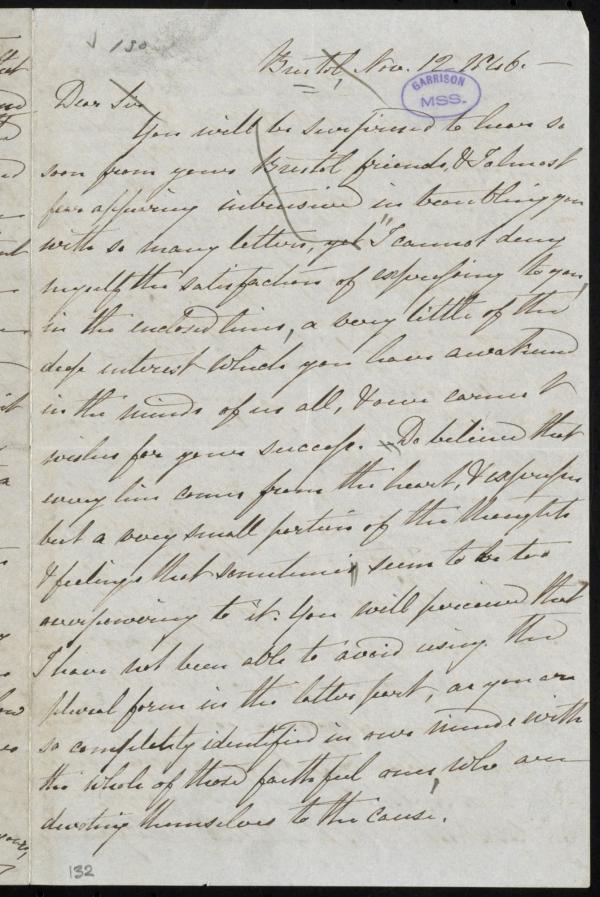 √ 130
Bristol, Nov. 12. 1846. —
GARRISON
MSS.
Dear Sir
You will be surprised to hear so
soon from your Bristol friends, & I almost
fear appearing intrusive in troubling you
with so many letters, yet "I cannot deny
myself the satisfaction of expressing to you,
in the enclosed lines, a very little of the
deep interest which you have awakened
in the minds of us all, & our earnest
wishes for your success. "Do believe that
every line comes from the heart, & expresses
but a very small portion of the thoughts
& feelings that sometimes seem to be too
overpowering to it. You will perceive that
I have not been able to avoid using the
plural form in the latter part, as you are
so completely identified in our minds with
the whole of those faithful ones, who are
devoting themselves to the cause.
132